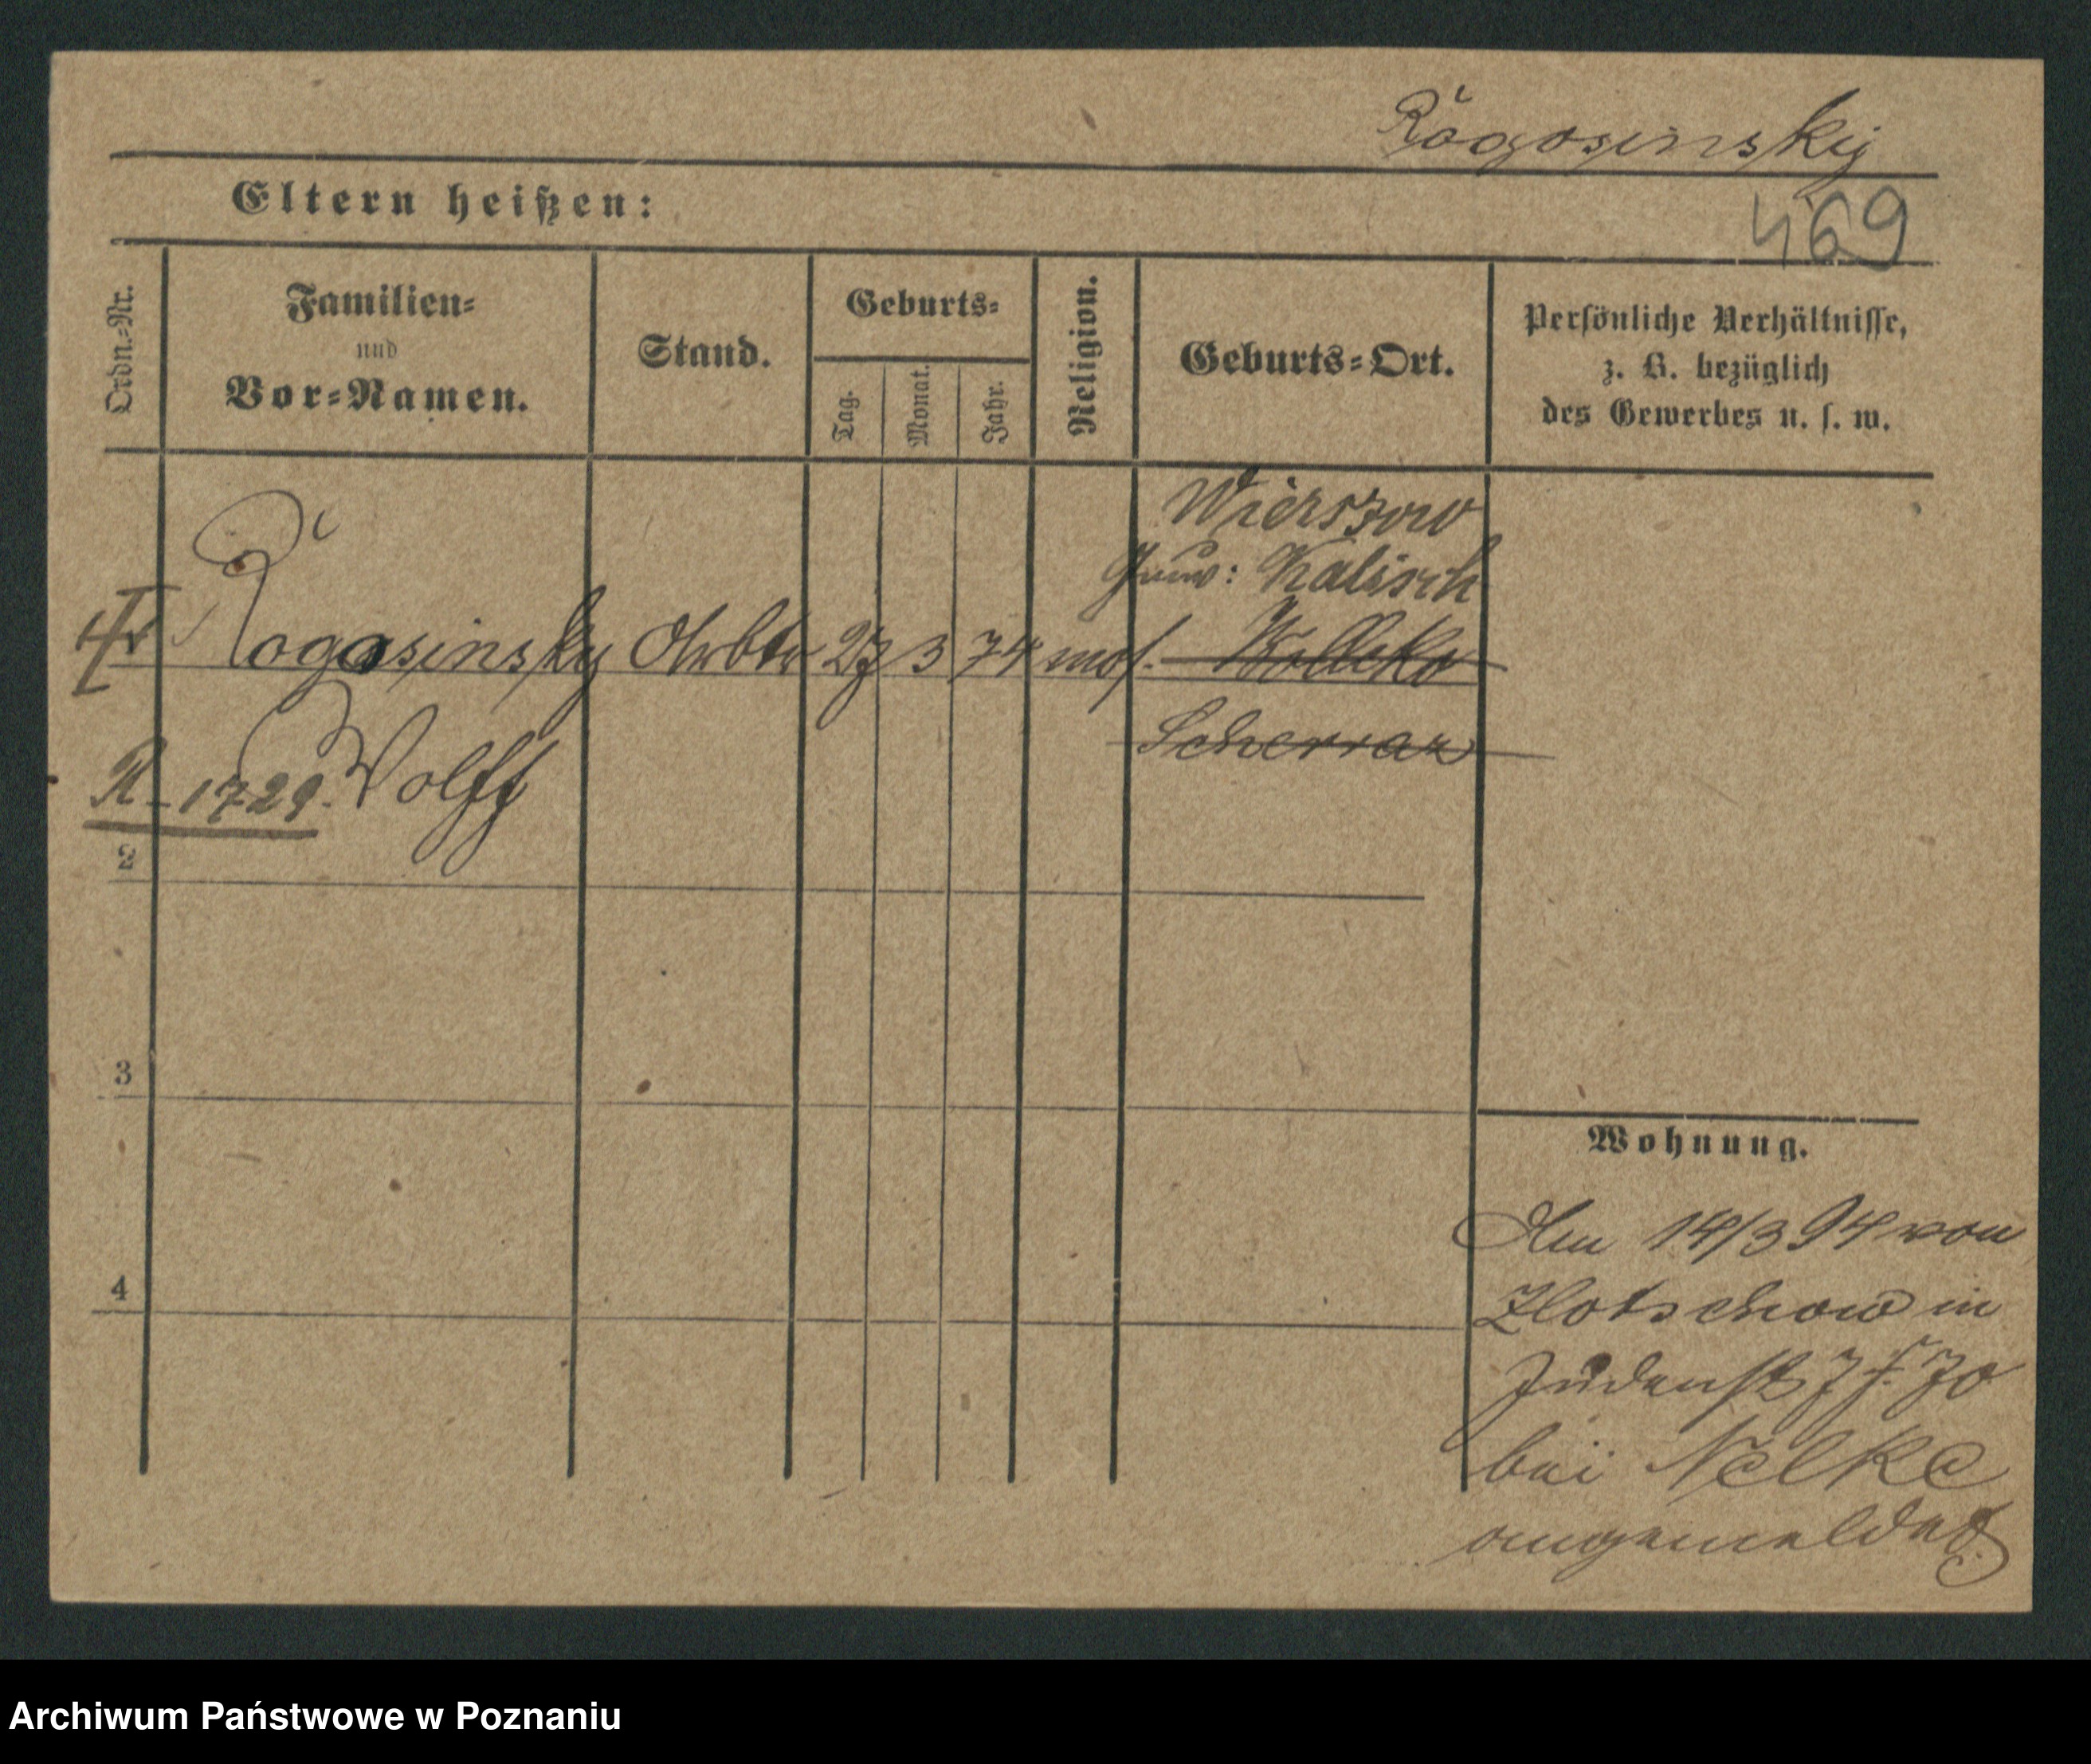 Rogosinsky
469
Eltern heißen:
Ordn.-Nr.
Familien-
und
Vor-Namen.
Stand.
Geburts-
Tag.
Monat.
Jahr.
Religion.
Geburts-Ort.
Persönliche Verhältnisse,
z. B. bezüglich
des Gewerbes u. s. w.
Wierszow
Gouv: Kalisch
Rogosinsky Arbtr 27 3 74 mos.
Scherraz
R-1729. Wolff
2
3
4
Wohnung.
Am 14/3 94 von
Zlotschow in
Judenstr
bei Nelke
angemeldet
Archiwum Państwowe w Poznaniu